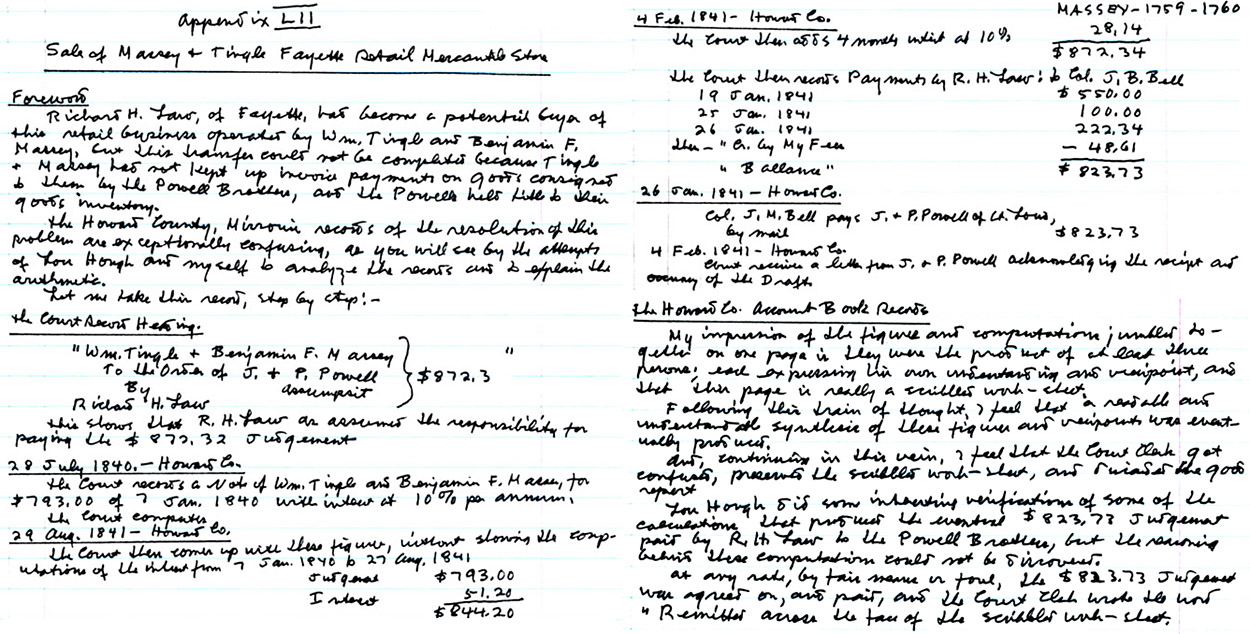 Appendix LII
Sale of Massey & Tingle Fayette Retail Mercantile Store
Foreword
Richard H. Law, of Fayette, has become a potential buyer of
this retail business operated by Wm. Tingle and Benjamin F.
Massey, but this transfer could not be completed because Tingle
& Massey had not kept up invoice payments on goods consigned
to them by the Powell Brothers, and the Powells held title to their
goods inventory.
The Howard County, Missouri records of the resolution of this
problem are exceptionally confusing, as you will see by the attempts
of Lou Hough and myself to analyze the records and to explain the
arithmetic.
Let me take this record, step by step:-
The Court Record Hearing.
"Wm. Tingle & Benjamin F. Massey
To the Order of J. & P. Powell
By assumpsit
Richard H. Law
} $872.3 "
This shows that R. H. Law as assumed the responsibility for
paying the $872.32 Judgement
28 July 1840. - Howard Co.
The Court records a Note of Wm. Tingle and Benjamin F. Massey, for
$793.00 of 7 Jan. 1840 with interest at 10% per annum.
The Court computes
29 Aug. 1841 - Howard Co.
The Court then comes up with these figures, without showing the comp-
utations of the interest from 7 Jan. 1840 to 27 Aug. 1841
Judgement $793.00
Interest 51.20
$844.20
MASSEY-1759-1760
4 Feb. 1841 - Howard Co.
The Court then adds 4 months interest at 10% 28.14
$872.34
The Court then records Payments by R. H. Law: to Col. J. B. Bell
19 Jan. 1841 $550.00
25 Jan. 1841 100.00
26 Jan. 1841 222.34
then - "Cr. by My Fees - 48.61
"Ballance" $823.73
26 Jan. 1841 - Howard Co.
Col. J. M. Bell pays J. & P. Powell of St. Louis,
by mail $823.73
4 Feb. 1841 - Howard Co.
Court receives a letter from J. & P. Powell acknowledging the receipt and
of the Draft
The Howard Co. Account Book Records
My impression of the figures and computations jumbled to-
gether on one page is they were the product of at least three
persons, each expressing his own understanding and viewpoint, and
that this page is really a scribbled work-sheet.
Following this train of thought, I feel that a readable and
understandable synthesis of these figures and viewpoints was event-
ually produced.
And, continuing in this vein, I feel that the Court Clerk got
confused, preserved the scribbled work-sheet, and the good
report
Lou Hough did some interesting verifications of some of the
calculations that produced the eventual $823.73 Judgement
paid by R. H. Law to the Powell Brothers, but the reasoning
behind these computations could not be discovered.
At any rate, by fair means or foul, the $823.73 Judgement
was agreed on, and paid, and the Court Clerk wrote the word
"Remitted across the face of the scribbled work-sheet.